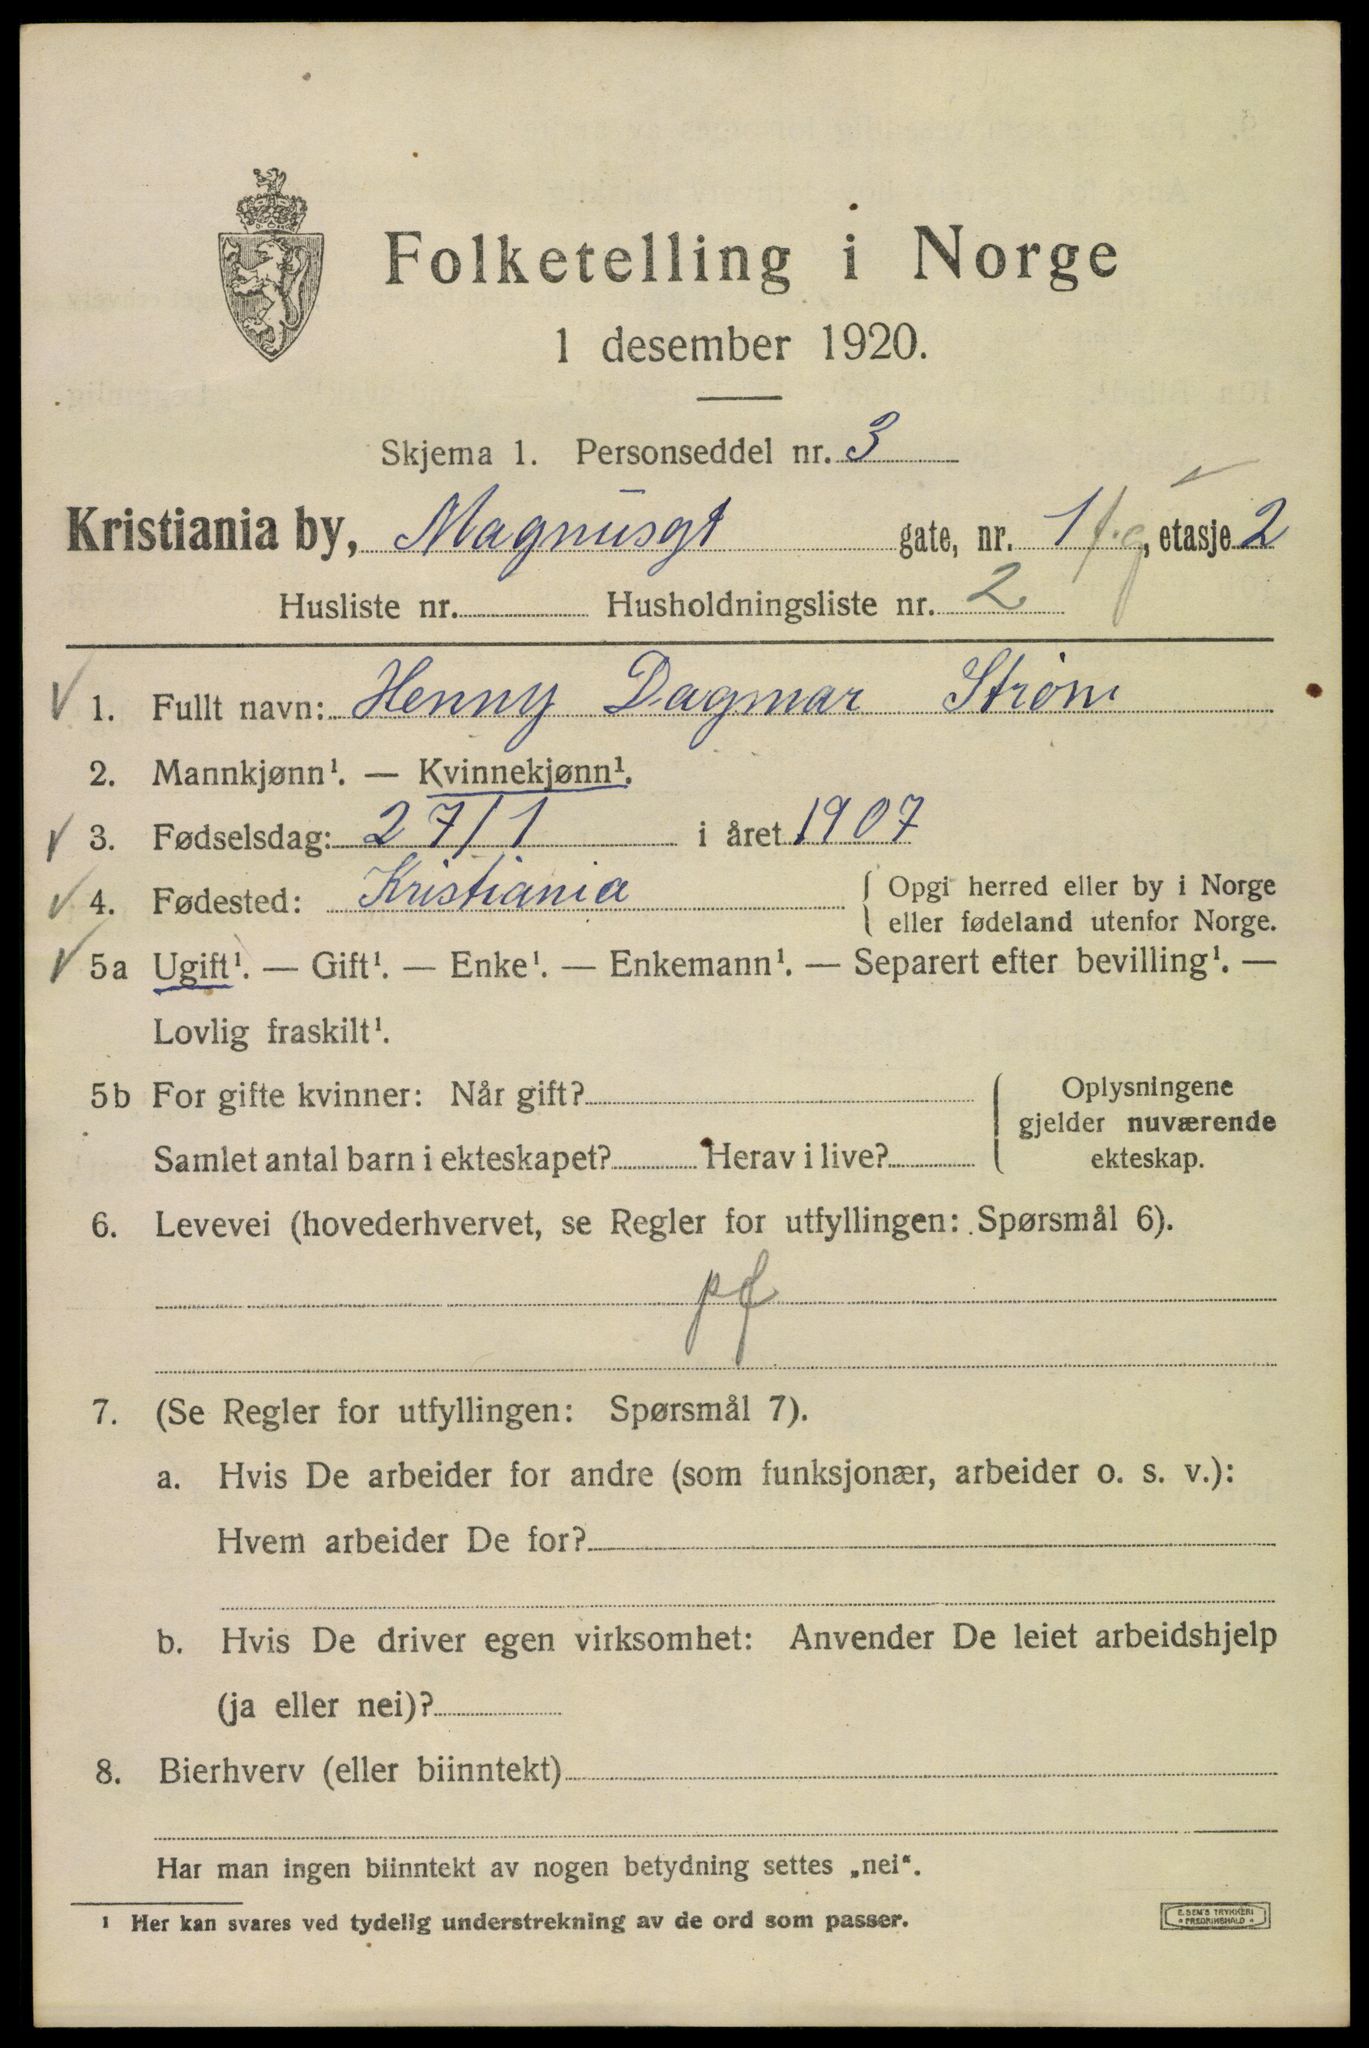 Folketelling i Norge
1 desember 1920.
Skjema 1. Personseddel nr. 3
Kristiania by, Magnusgt gate, nr. 1 f.g, etasje 2
Husliste nr. Husholdningsliste nr. 2
1. Fullt navn: Henny Dagmar Strøm
2. Mannkjønn¹. — Kvinnekjønn¹.
3. Fødselsdag: 27/1 i året 1907
4. Fødested: Kristiania { Opgi herred eller by i Norge
eller fødeland utenfor Norge.
5a Ugift¹. — Gift¹. — Enke¹. — Enkemann¹. — Separert efter bevilling¹. —
Lovlig fraskilt¹.
5b For gifte kvinner: Når gift? { Oplysningene
gjelder nuværende
Samlet antal barn i ekteskapet? Herav i live? ekteskap.
6. Levevei (hovederhvervet, se Regler for utfyllingen: Spørsmål 6).
pf
7. (Se Regler for utfyllingen: Spørsmål 7).
a. Hvis De arbeider for andre (som funksjonær, arbeider o. s. v.):
Hvem arbeider De for?
b. Hvis De driver egen virksomhet: Anvender De leiet arbeidshjelp
(ja eller nei)?
8. Bierhverv (eller biinntekt)
Har man ingen biinntekt av nogen betydning settes „nei“.
¹ Her kan svares ved tydelig understrekning av de ord som passer.
E. SEM'S TRYKKERI
• FREDRIKSHALD •